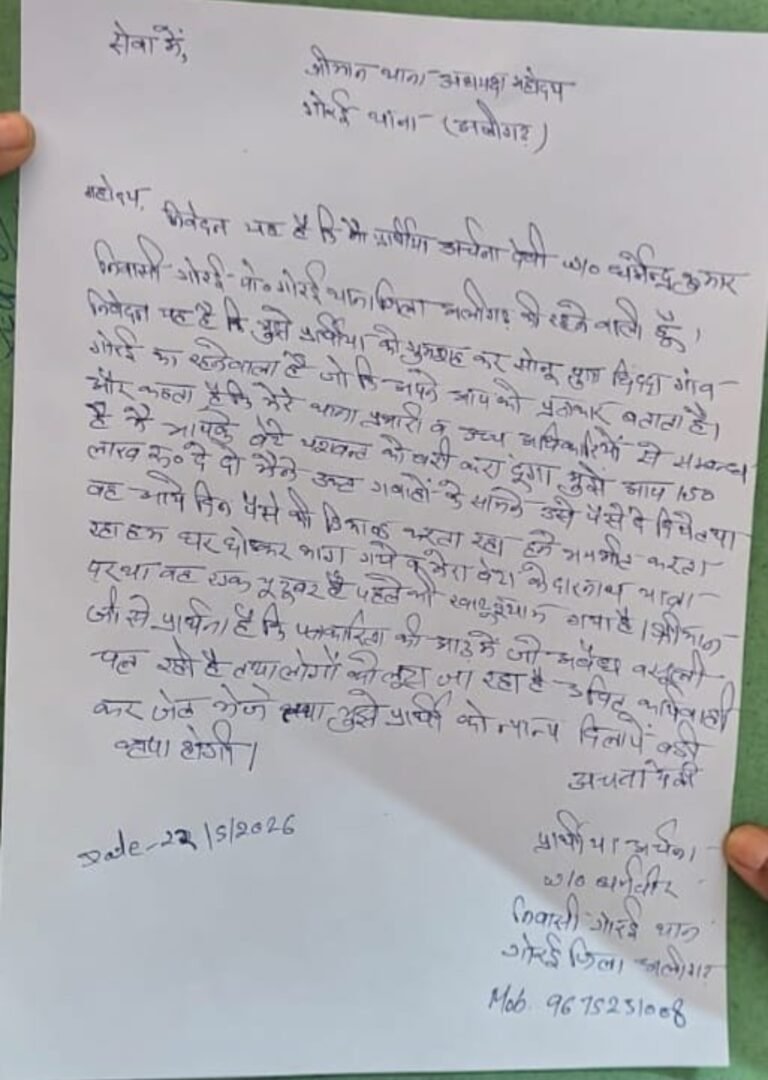 सेवा में,
श्रीमान थाना अध्यक्ष महोदय
गोरई थाना (अलीगढ़)
महोदय, निवेदन यह है कि मैं प्रार्थीया अर्चना देवी w/o धर्मेन्द्र कुमार
निवासी गोरई पो० गोरई थाना जिला अलीगढ़ की रहने वाली हूँ।
निवेदन यह है कि मुझे प्रार्थीया को गुमराह कर सोनू पुत्र गांव
गोरई का रहनेवाला है जो कि अपने आप को पत्रकार बताता है।
और कहता है कि मेरे थाना प्रभारी व उच्च अधिकारियों से सम्बन्ध
है मैं आपके बेटे यशवन्त को बरी करा दूंगा मुझे आप 1.50
लाख रु० दे दो मैंने उक्त गवाहों के सामने उसे पैसे दे दिये तथा
वह आये दिन पैसे की डिमांड करता रहा हमें भयभीत करता
रहा हम घर छोड़कर भाग गये व मेरा बेटा केदारनाथ यात्रा
पर था वह एक यूट्यूबर है पहले भी गया है। श्रीमान
जी से प्रार्थना है कि पत्रकारिता की आड़ में जो अवैध वसूली
चल रही है तथा लोगों को लूटा जा रहा है उचित कार्यवाही
कर जेल भेजे तथा मुझे प्रार्थी को न्याय दिलायें बड़ी
कृपा होगी।
अर्चना देवी
Date-22/5/2026
प्रार्थीया अर्चना
w/o धर्मवीर
निवासी गोरई थाना
गोरई जिला अलीगढ़
Mob. 9675231008